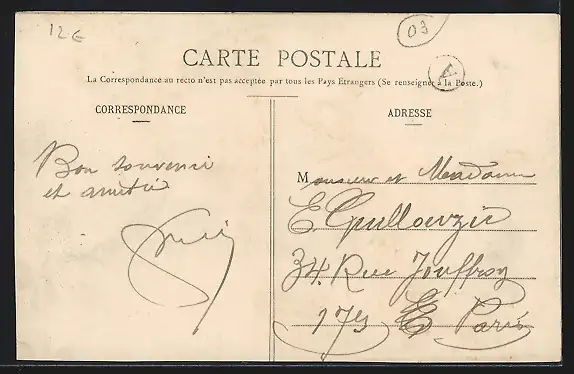 12 €
03
A
CARTE POSTALE
La Correspondance au recto n'est pas acceptée par tous les Pays Etrangers (Se renseigner à la Poste.)
CORRESPONDANCE
ADRESSE
Bon souvenir
et amitié
Monsieur et Madame
E
34. Rue Jouffroy
17e Paris